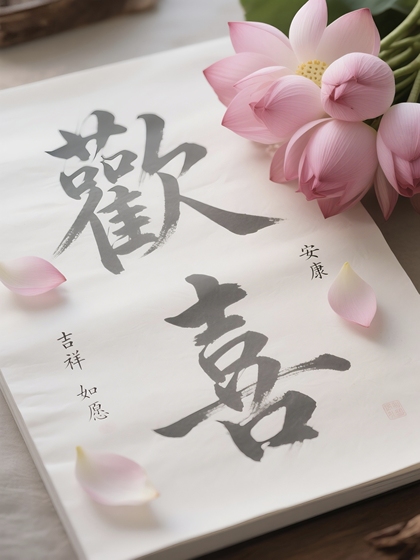 歡
喜
安康
吉祥
如愿